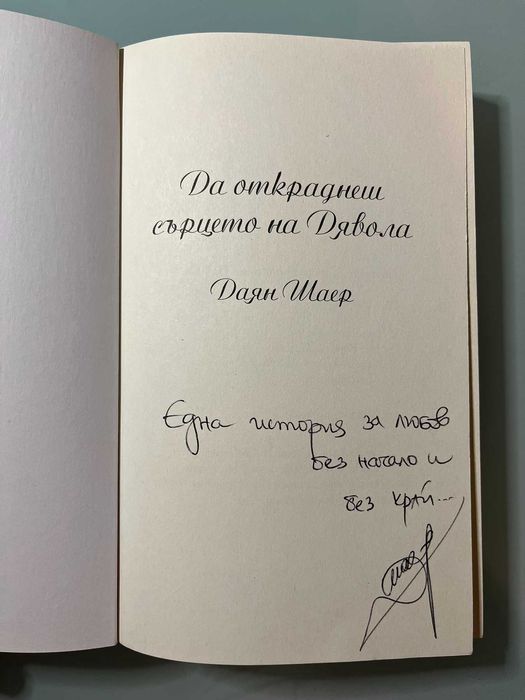 Да откраднеш
сърцето на Дявола
Даян Шаер
Една история за любов
без начало и
без край...